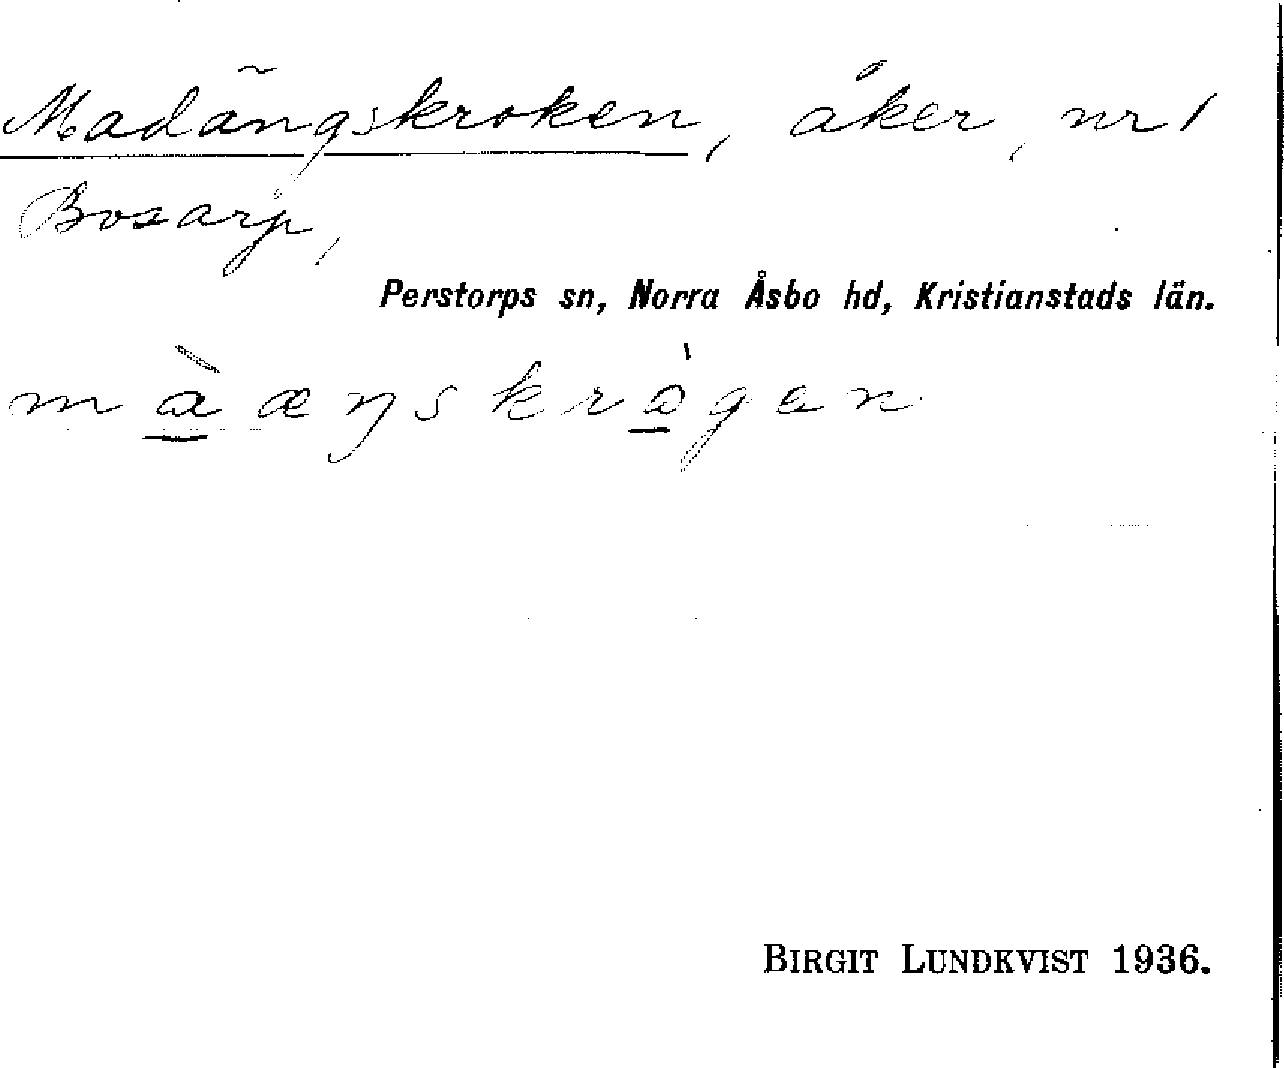 Madängskroken, åker, nr 1
Bosarp,
Perstorps sn, Norra Åsbo hd, Kristianstads län.
màæŋskrògən
BIRGIT LUNDKVIST 1936.